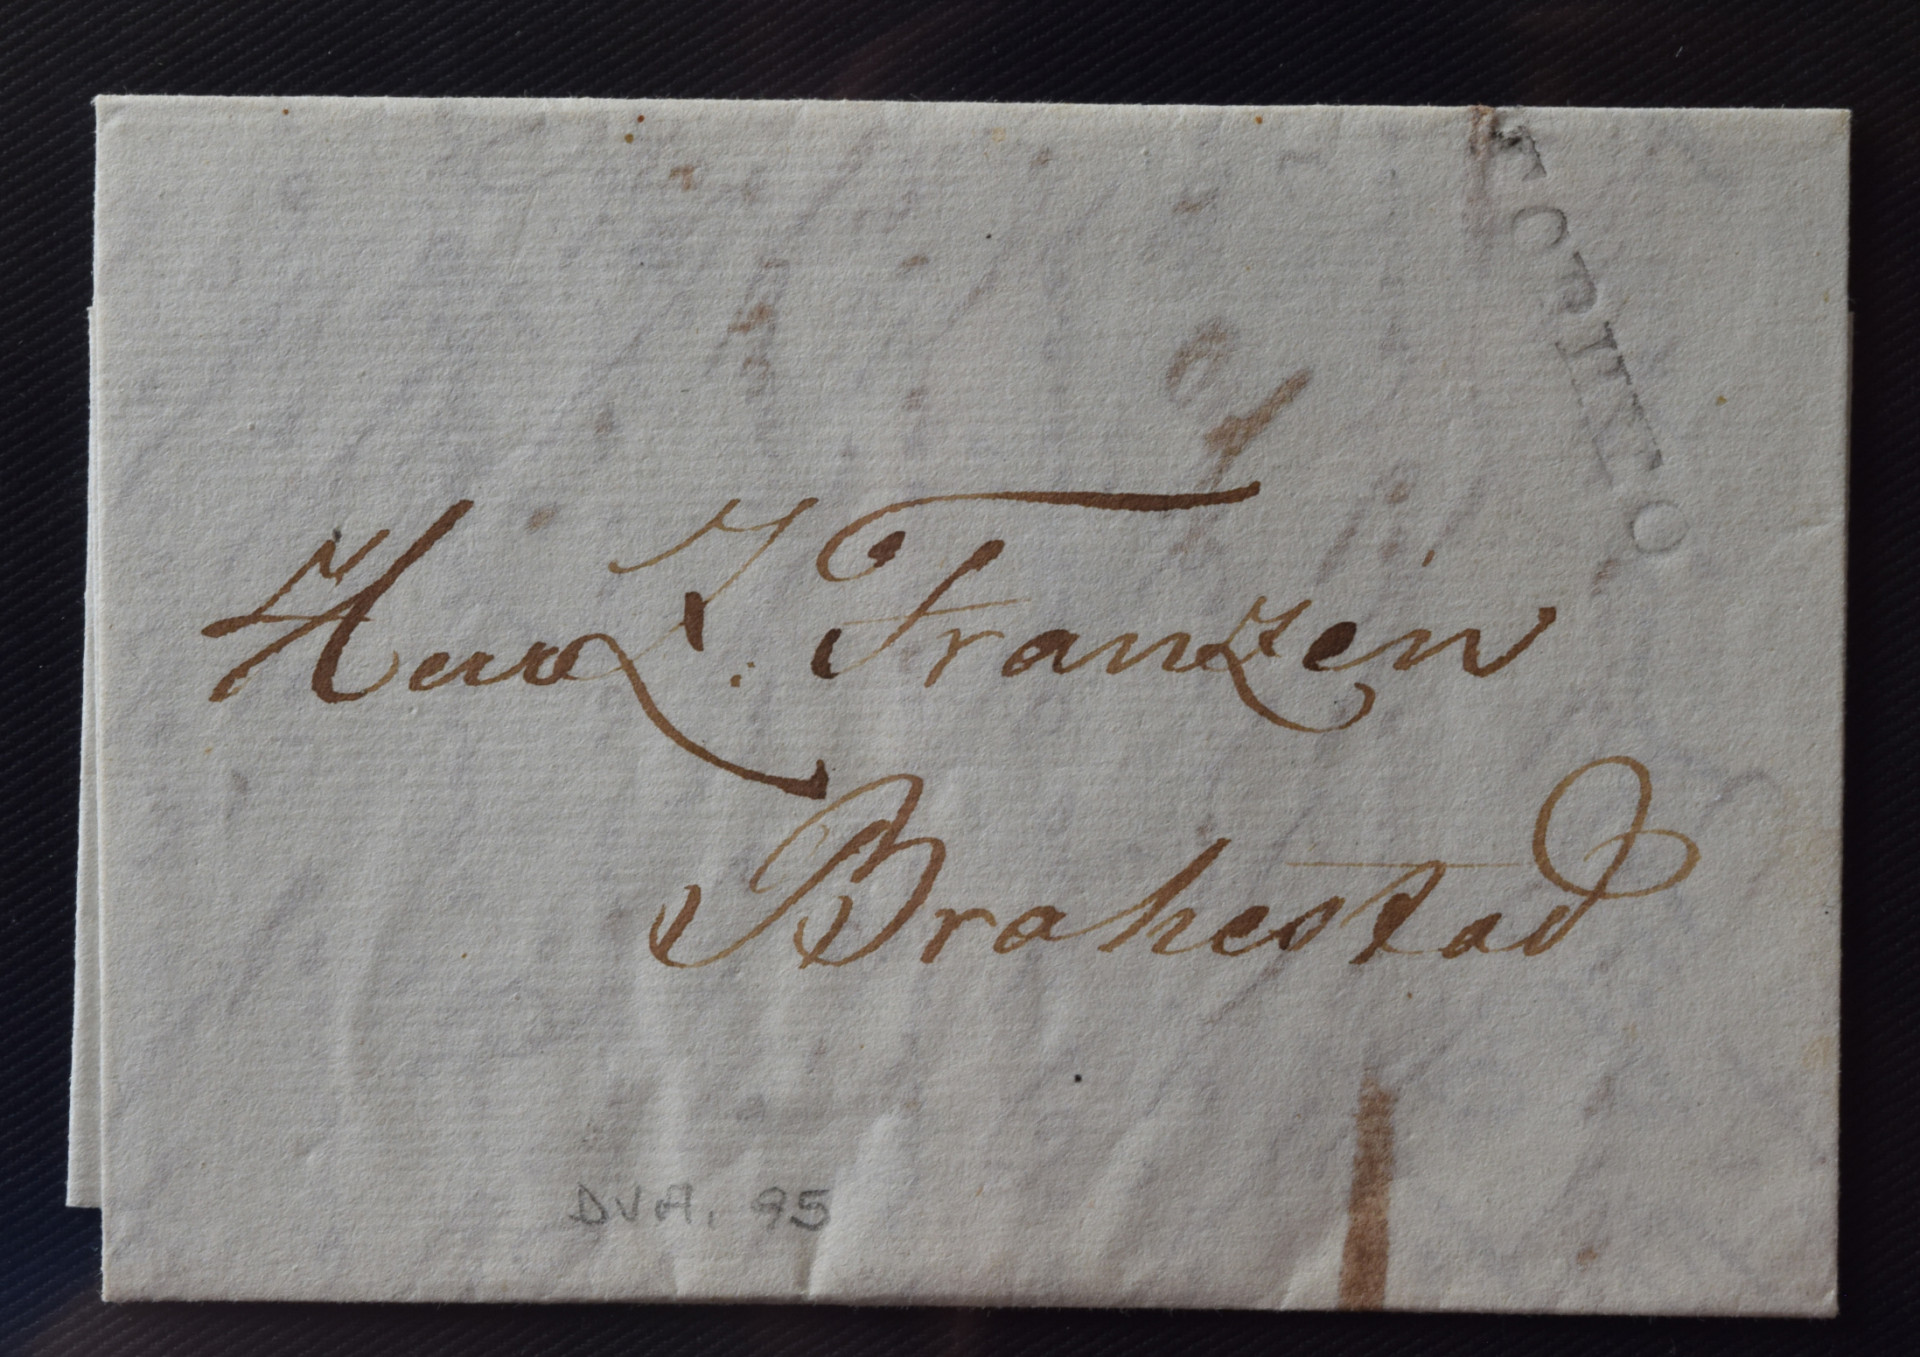 TORNEO
Herr Z. Franzén
Brahestad
DVA. 95